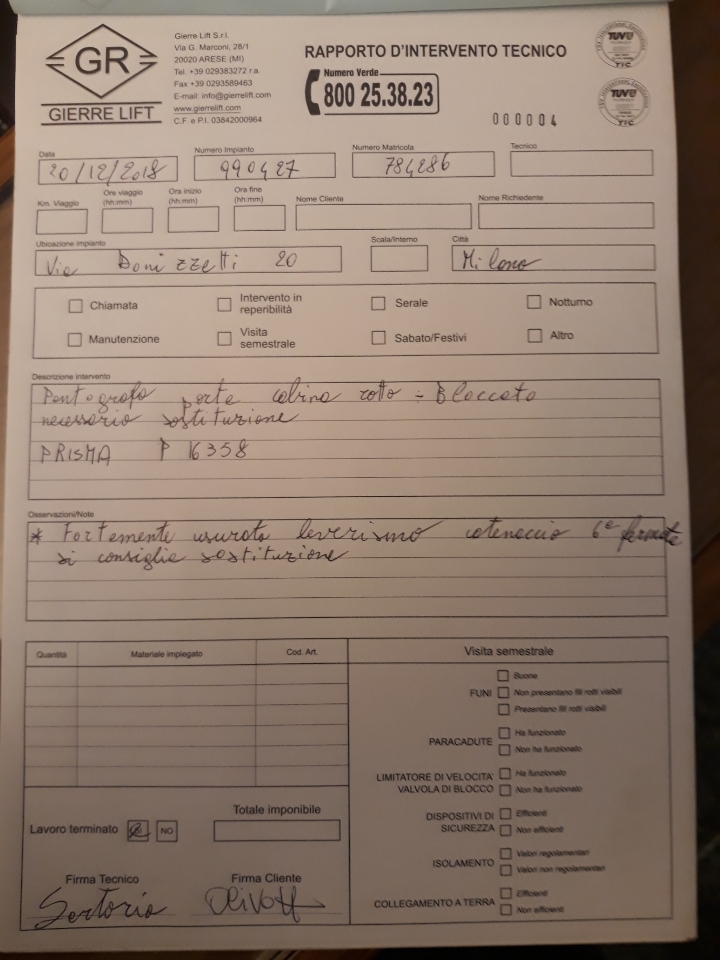 GR
GIERRE LIFT
Gierre Lift S.r.l.
Via G. Marconi, 28/1
20020 ARESE (MI)
Tel. +39 029383272 r.a.
Fax +39 0293589463
E-mail: info@gierrelift.com
www.gierrelift.com
C.F. e P.I. 03842000964
RAPPORTO D'INTERVENTO TECNICO
Numero Verde
800 25.38.23
000004
TUV
TIC
TUV
TIC
Data
20/12/2018
Numero Impianto
990427
Numero Matricola
784286
Tecnico
Km. Viaggio
Ore viaggio (hh:mm)
Ora inizio (hh:mm)
Ora fine (hh:mm)
Nome Cliente
Nome Richiedente
Ubicazione Impianto
Via Donizzetti 20
Scala/Interno
Città
Milano
Chiamata
Intervento in reperibilità
Serale
Notturno
Manutenzione
Visita semestrale
Sabato/Festivi
Altro
Descrizione intervento
Pantografo porta cabina rotto - Bloccato
necessario sostituzione
PRISMA P 16358
Osservazioni/Note
* Fortemente usurato leverismo catenaccio 6ª fermata
si consiglia sostituzione
Quantità
Materiale impiegato
Cod. Art.
Lavoro terminato
NO
Totale imponibile
Firma Tecnico
Sertorio
Firma Cliente
Visita semestrale
FUNI
Buone
Non presentano fili rotti visibili
Presentano fili rotti visibili
PARACADUTE
Ha funzionato
Non ha funzionato
LIMITATORE DI VELOCITA'
VALVOLA DI BLOCCO
Ha funzionato
Non ha funzionato
DISPOSITIVI DI
SICUREZZA
Efficienti
Non efficienti
ISOLAMENTO
Valori regolamentari
Valori non regolamentari
COLLEGAMENTO A TERRA
Efficienti
Non efficienti